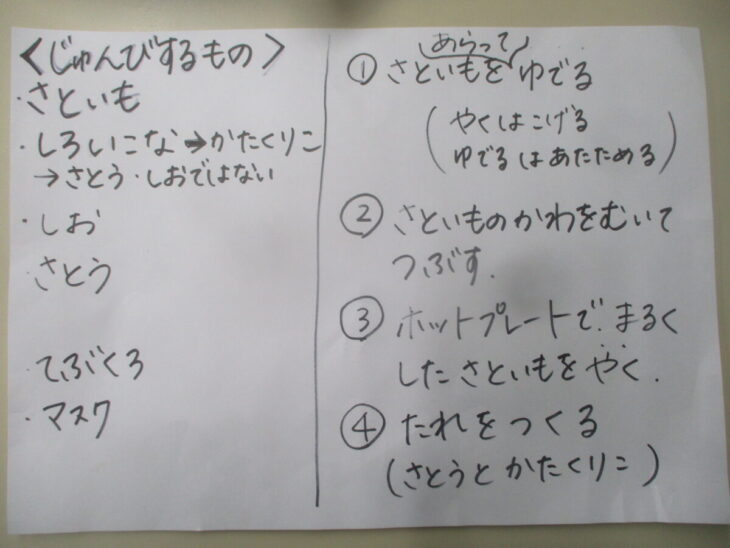 <じゅんびするもの>
・さといも
・しろいこな→かたくりこ
→さとう・しおではない
・しお
・さとう
・てぶくろ
・マスク
あらって
① さといもを ゆでる
(やくはこげる
ゆでるはあたためる)
② さといものかわをむいて
つぶす.
③ ホットプレートで まるく
したさといもをやく.
④ たれをつくる
(さとうとかたくりこ)